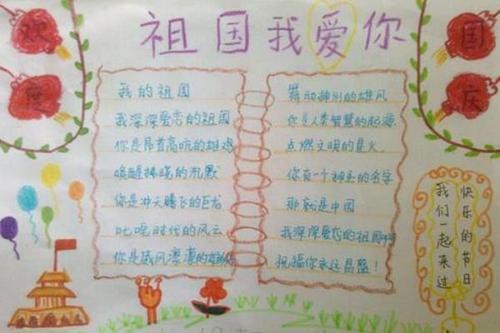 欢度
祖国我爱你
国庆
我的祖国
我深深爱恋的祖国
你是昂首高吭的雄鸡
唤醒拂晓的沉默
你是冲天腾飞的巨龙
叱咤时代的风云
你是威风凛凛的
舞动神州的雄风
你是人类智慧的起源
点燃文明的星火
你有一个神圣的名字
那就是中国
我深深爱恋的祖国
祝福你永远昌盛！
快乐的节日
我们一起来过